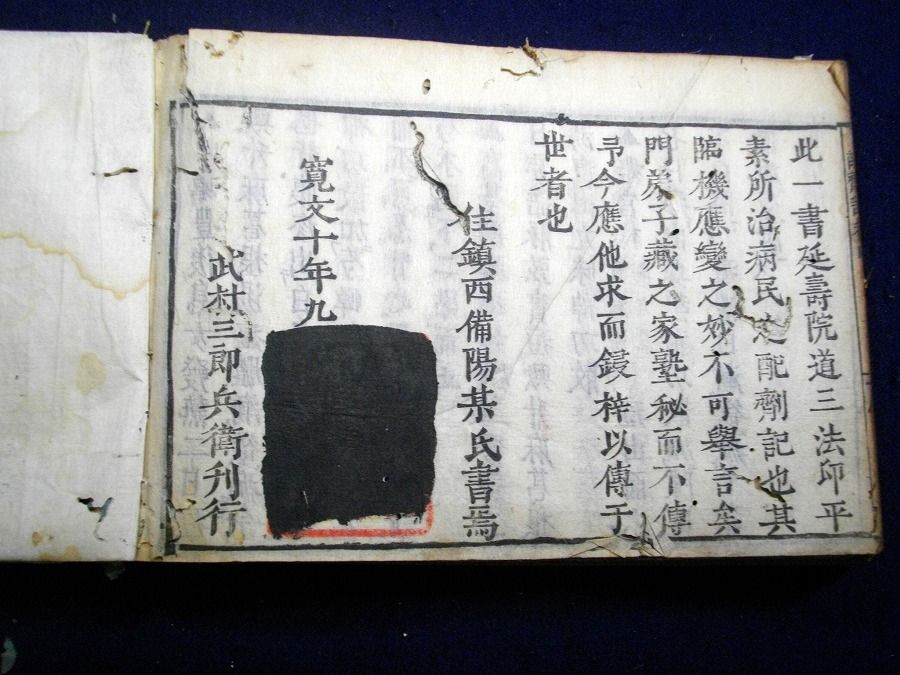 此一書延壽院道三法印平
素所治病民之配劑記也其
臨機應變之妙不可舉言矣
門弟子藏之家塾秘而不傳
予今應他求而鋟梓以傳于
世者也
住鎮西備陽某氏書焉
寛文十年九
武村三郎兵衛刊行